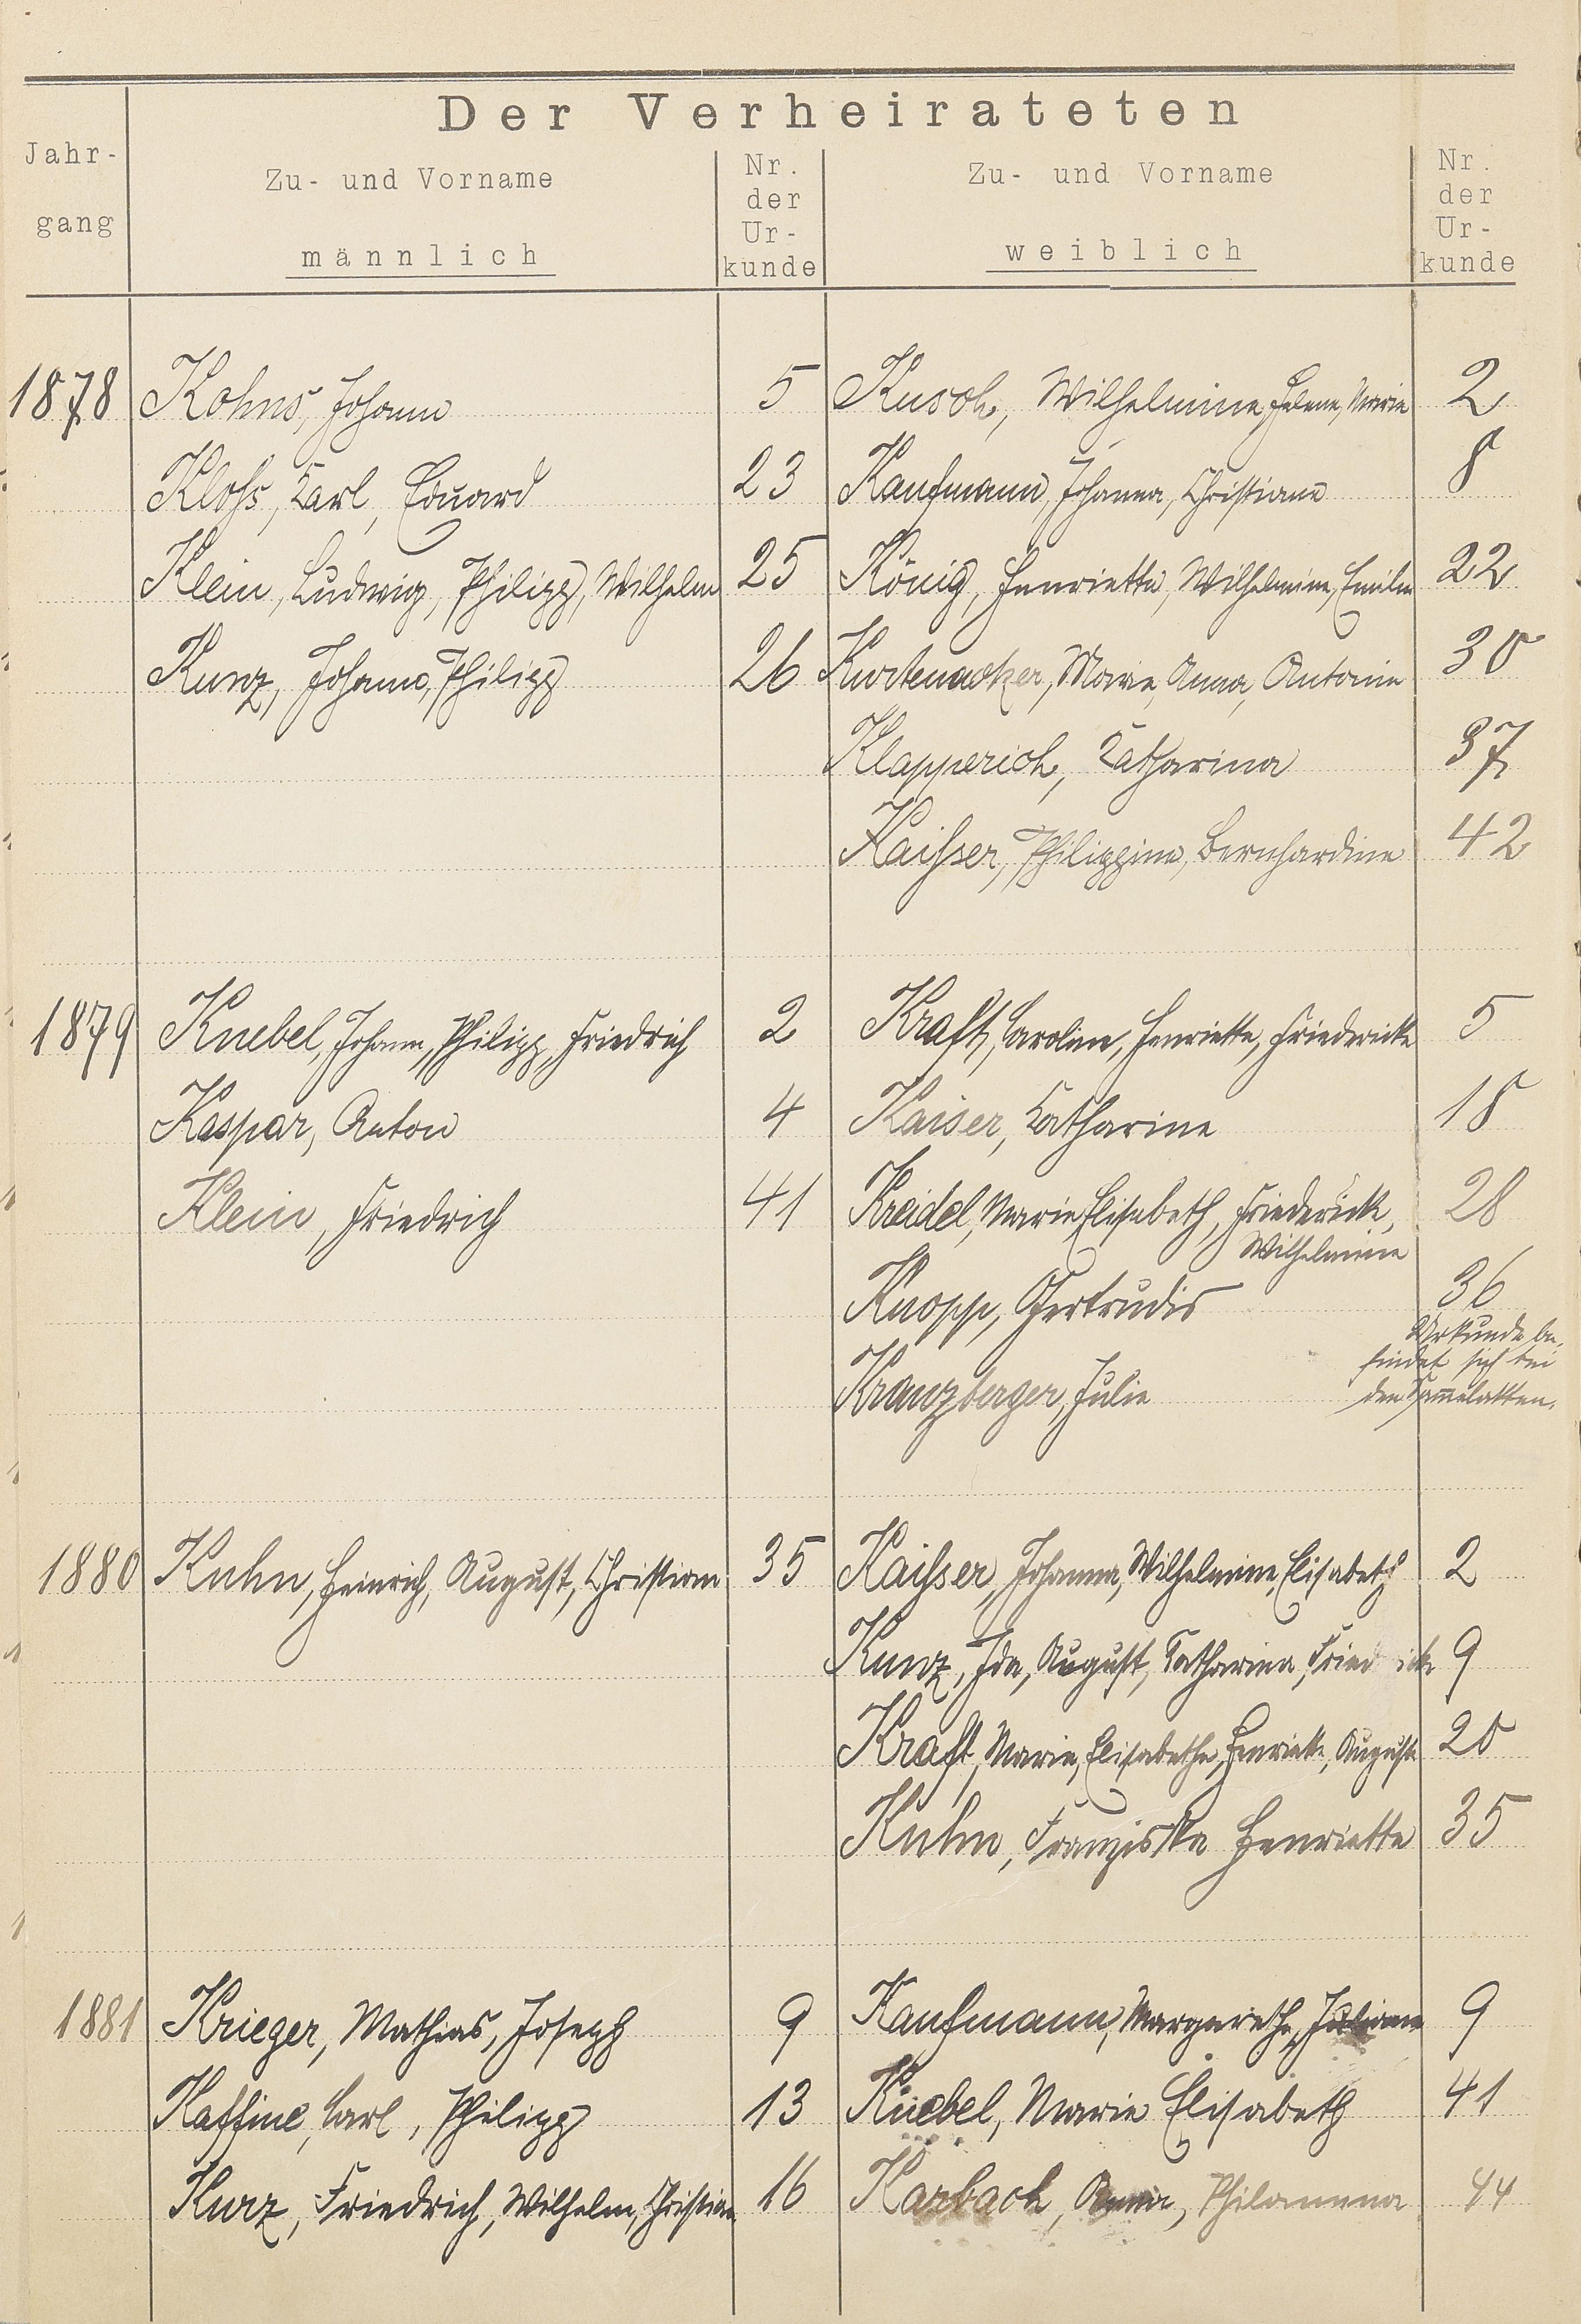 Der Verheirateten
Jahr-
gang
Zu- und Vorname
männlich
Nr.
der
Ur-
kunde
Zu- und Vorname
weiblich
Nr.
der
Ur-
kunde
1878 Kohns, Johann 5 Kusch, Wilhelmine, Helene, Marie 2
Kloss, Karl, Eduard 23 Kaufmann, Johanna, Christiane 8
Klein, Ludwig, Philipp, Wilhelm 25 König, Henriette, Wilhelmine, Emilie 22
Kunz, Johann, Philipp 26 Kurtenacker, Marie, Anna, Antonie 30
Klapperich, Katharina 37
Kaisser, Philippine, Bernhardine 42
1879 Knebel, Johann, Philipp, Friedrich 2 Kraft, Caroline, Henriette, Friedericke 5
Kaspar, Anton 4 Kaiser, Katharine 18
Klein, Friedrich 41 Kreidel, Marie Elisabeth, Friedericke, 28
Wilhelmine
Knopp, Gertrudis 36
Urkunde be-
findet sich bei
Kranzberger, Julie den Sammelakten.
1880 Kuhn, Heinrich, August, Christian 35 Kaisser, Johanna, Wilhelmine, Elisabeth 2
Kunz, Ida, August, Katharina, Fried icke 9
Kraft, Marie, Elisabethe, Henriette, Auguste 20
Kuhn, Franziska Henriette 35
1881 Krieger, Mathias, Joseph 9 Kaufmann, Margarethe, Juliane 9
Kaffine, Carl, Philipp 13 Knebel, Marie Elisabeth 41
Kurz, Friedrich, Wilhelm, Christian 16 Karbach, Anna, Philomena 44